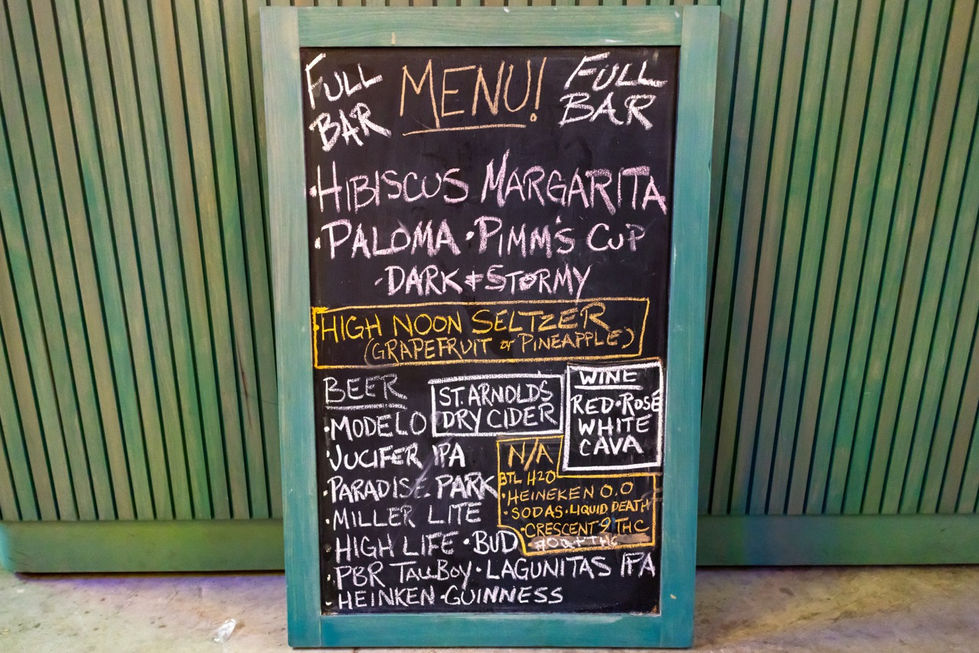 FULL BAR
MENU!
FULL BAR
·HIBISCUS MARGARITA
·PALOMA·PIMM'S CUP
·DARK & STORMY
HIGH NOON SELTZER
(GRAPEFRUIT or PINEAPPLE)
BEER
·MODELO
·JUCIFER IPA
·PARADISE PARK
·MILLER LITE
·HIGH LIFE·BUD
·PBR TALLBOY·LAGUNITAS IPA
·HEINKEN·GUINNESS
ST. ARNOLDS
DRY CIDER
WINE
RED·ROSÉ
WHITE
CAVA
N/A
BTL H2O
·HEINEKEN 0.0
·SODAS·LIQUID DEATH
·CRESCENT 9 THC